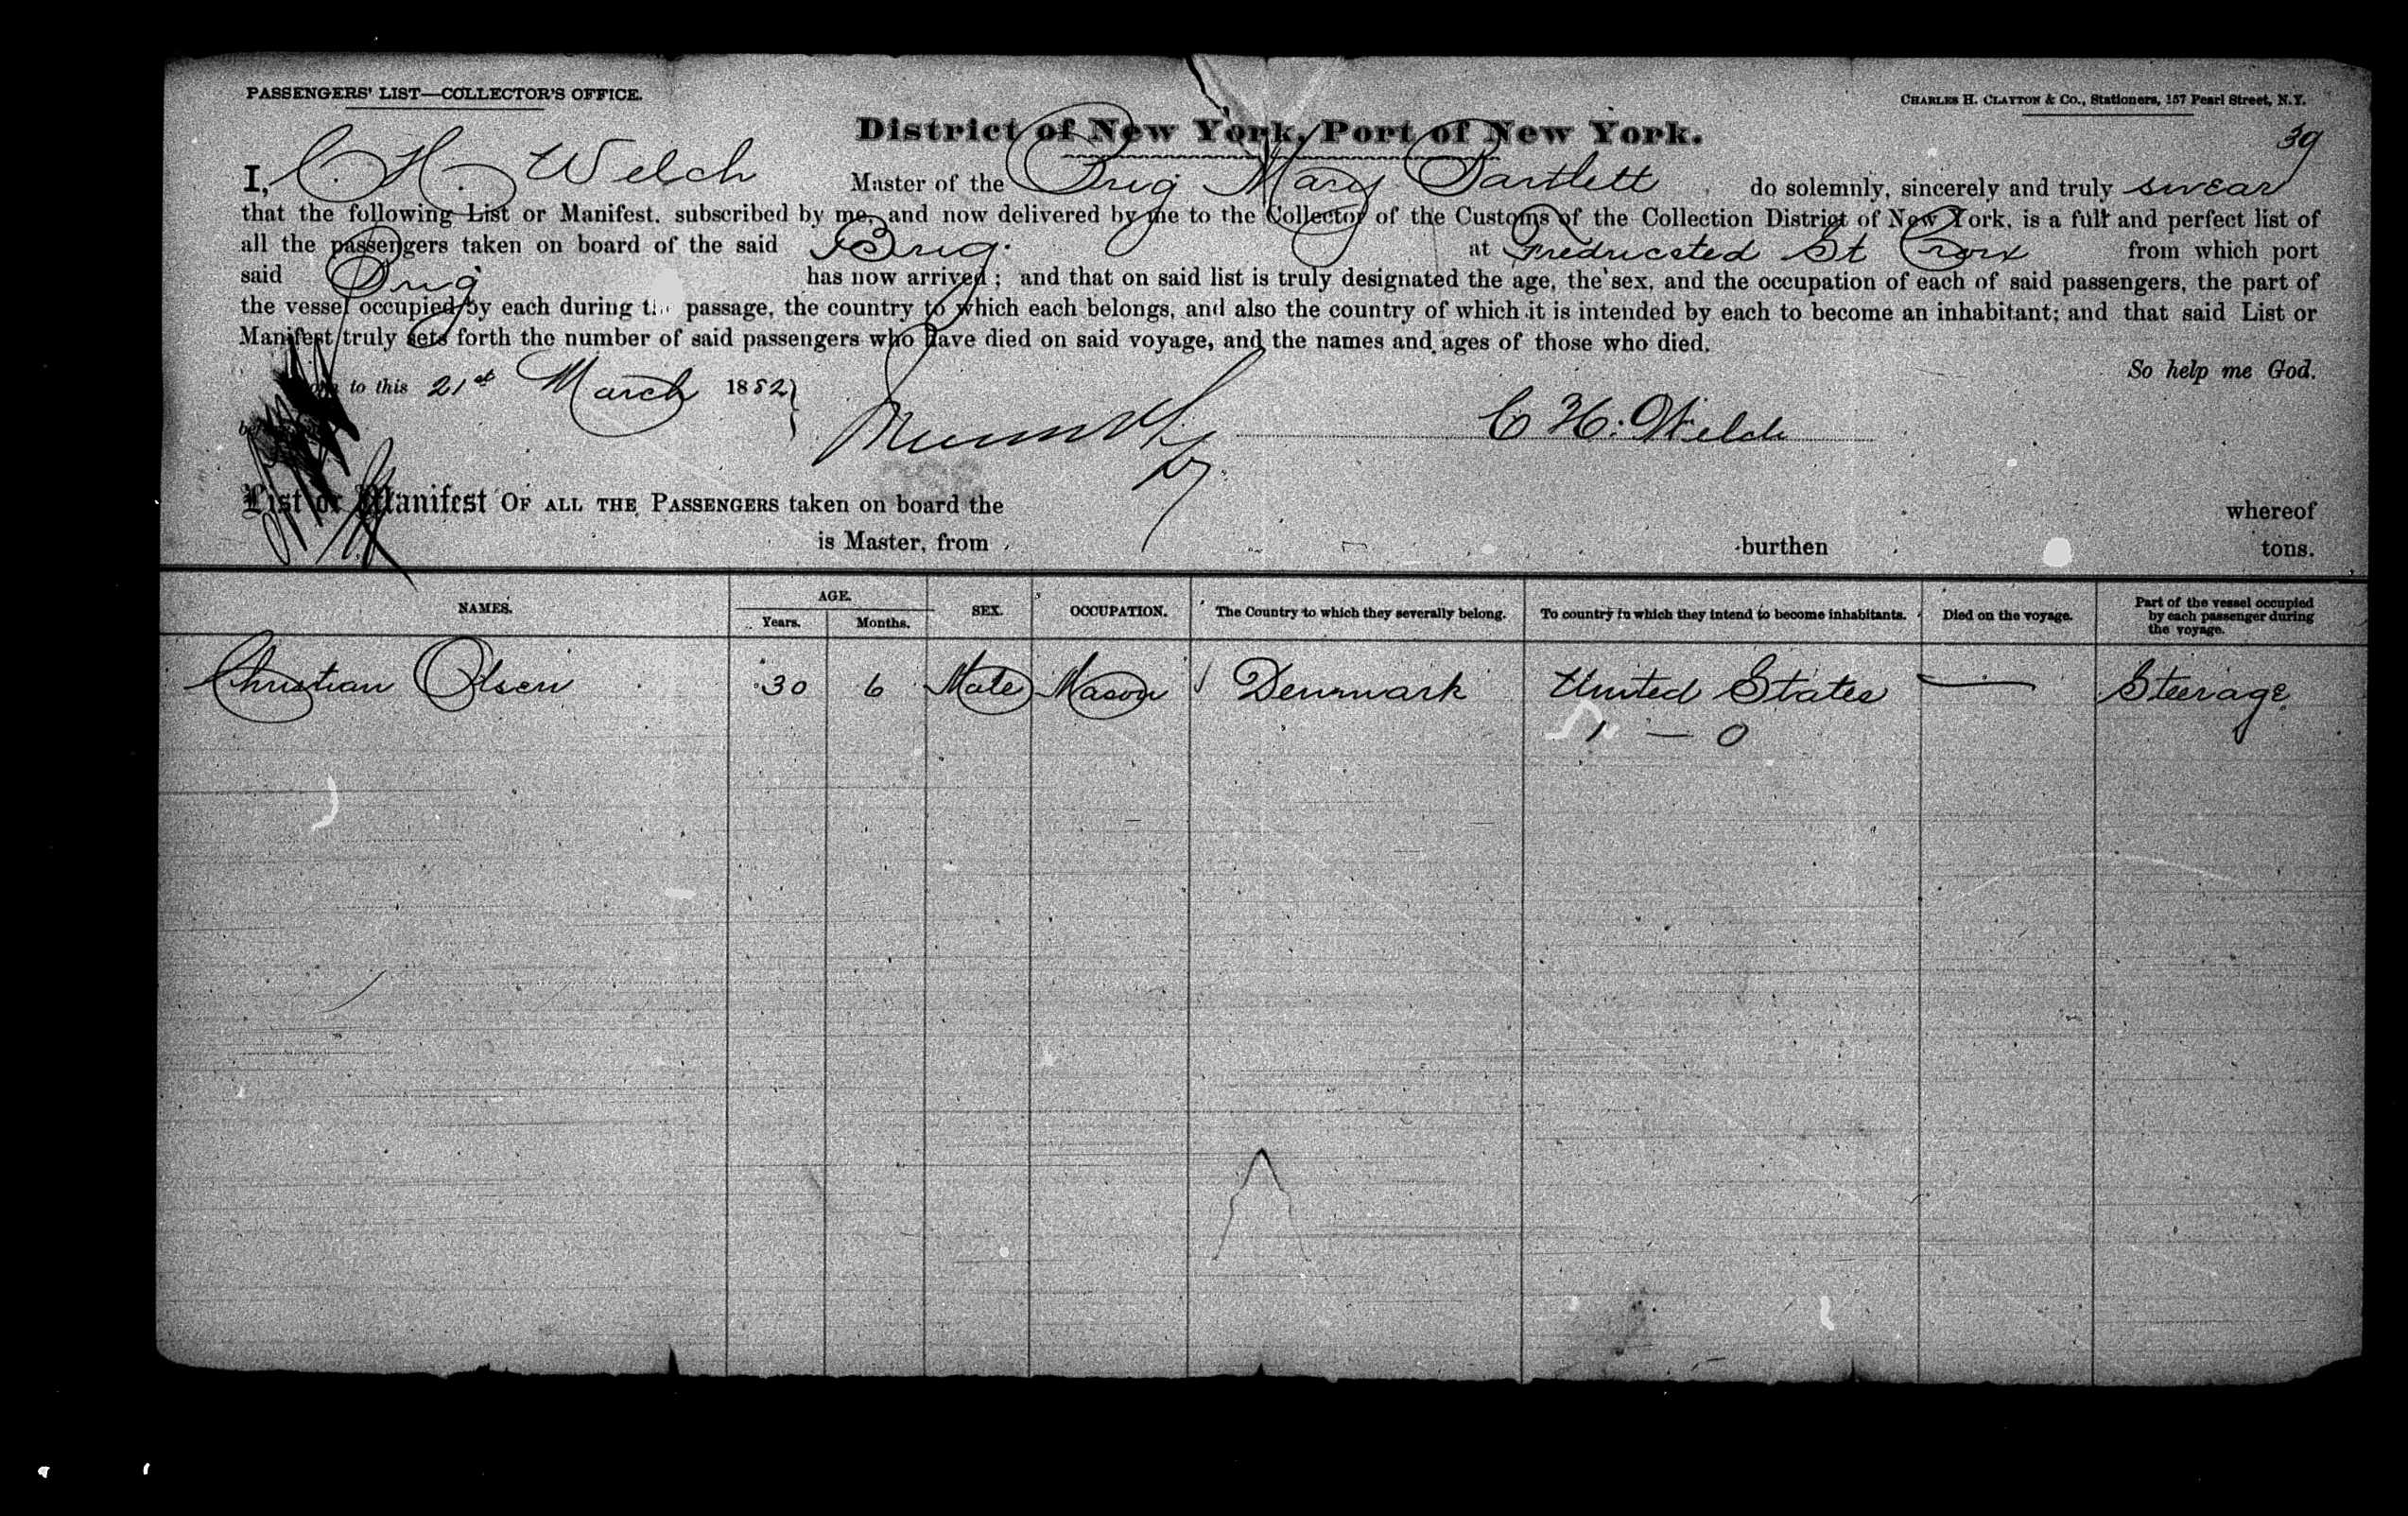 PASSENGERS' LIST—COLLECTOR'S OFFICE.
CHARLES H. CLAYTON & Co., Stationers, 157 Pearl Street, N.Y.
District of New York, Port of New York.
39
I, C. H. Welch Master of the Brig Mary Bartlett do solemnly, sincerely and truly swear
that the following List or Manifest, subscribed by me, and now delivered by me to the Collector of the Customs of the Collection District of New York, is a full and perfect list of
all the passengers taken on board of the said Brig. at Fredricsted St Croix from which port
said Brig has now arrived; and that on said list is truly designated the age, the sex, and the occupation of each of said passengers, the part of
the vessel occupied by each during the passage, the country to which each belongs, and also the country of which it is intended by each to become an inhabitant; and that said List or
Manifest truly sets forth the number of said passengers who have died on said voyage, and the names and ages of those who died.
So help me God.
to this 21st March 1882
C H. Welch
List or Manifest OF ALL THE PASSENGERS taken on board the whereof
is Master, from burthen tons.
NAMES. AGE. Years. Months. SEX. OCCUPATION. The Country to which they severally belong. To country in which they intend to become inhabitants. Died on the voyage. Part of the vessel occupied by each passenger during the voyage.
Christian Olsen 30 6 Male Mason Denmark United States — Steerage
1 — 0